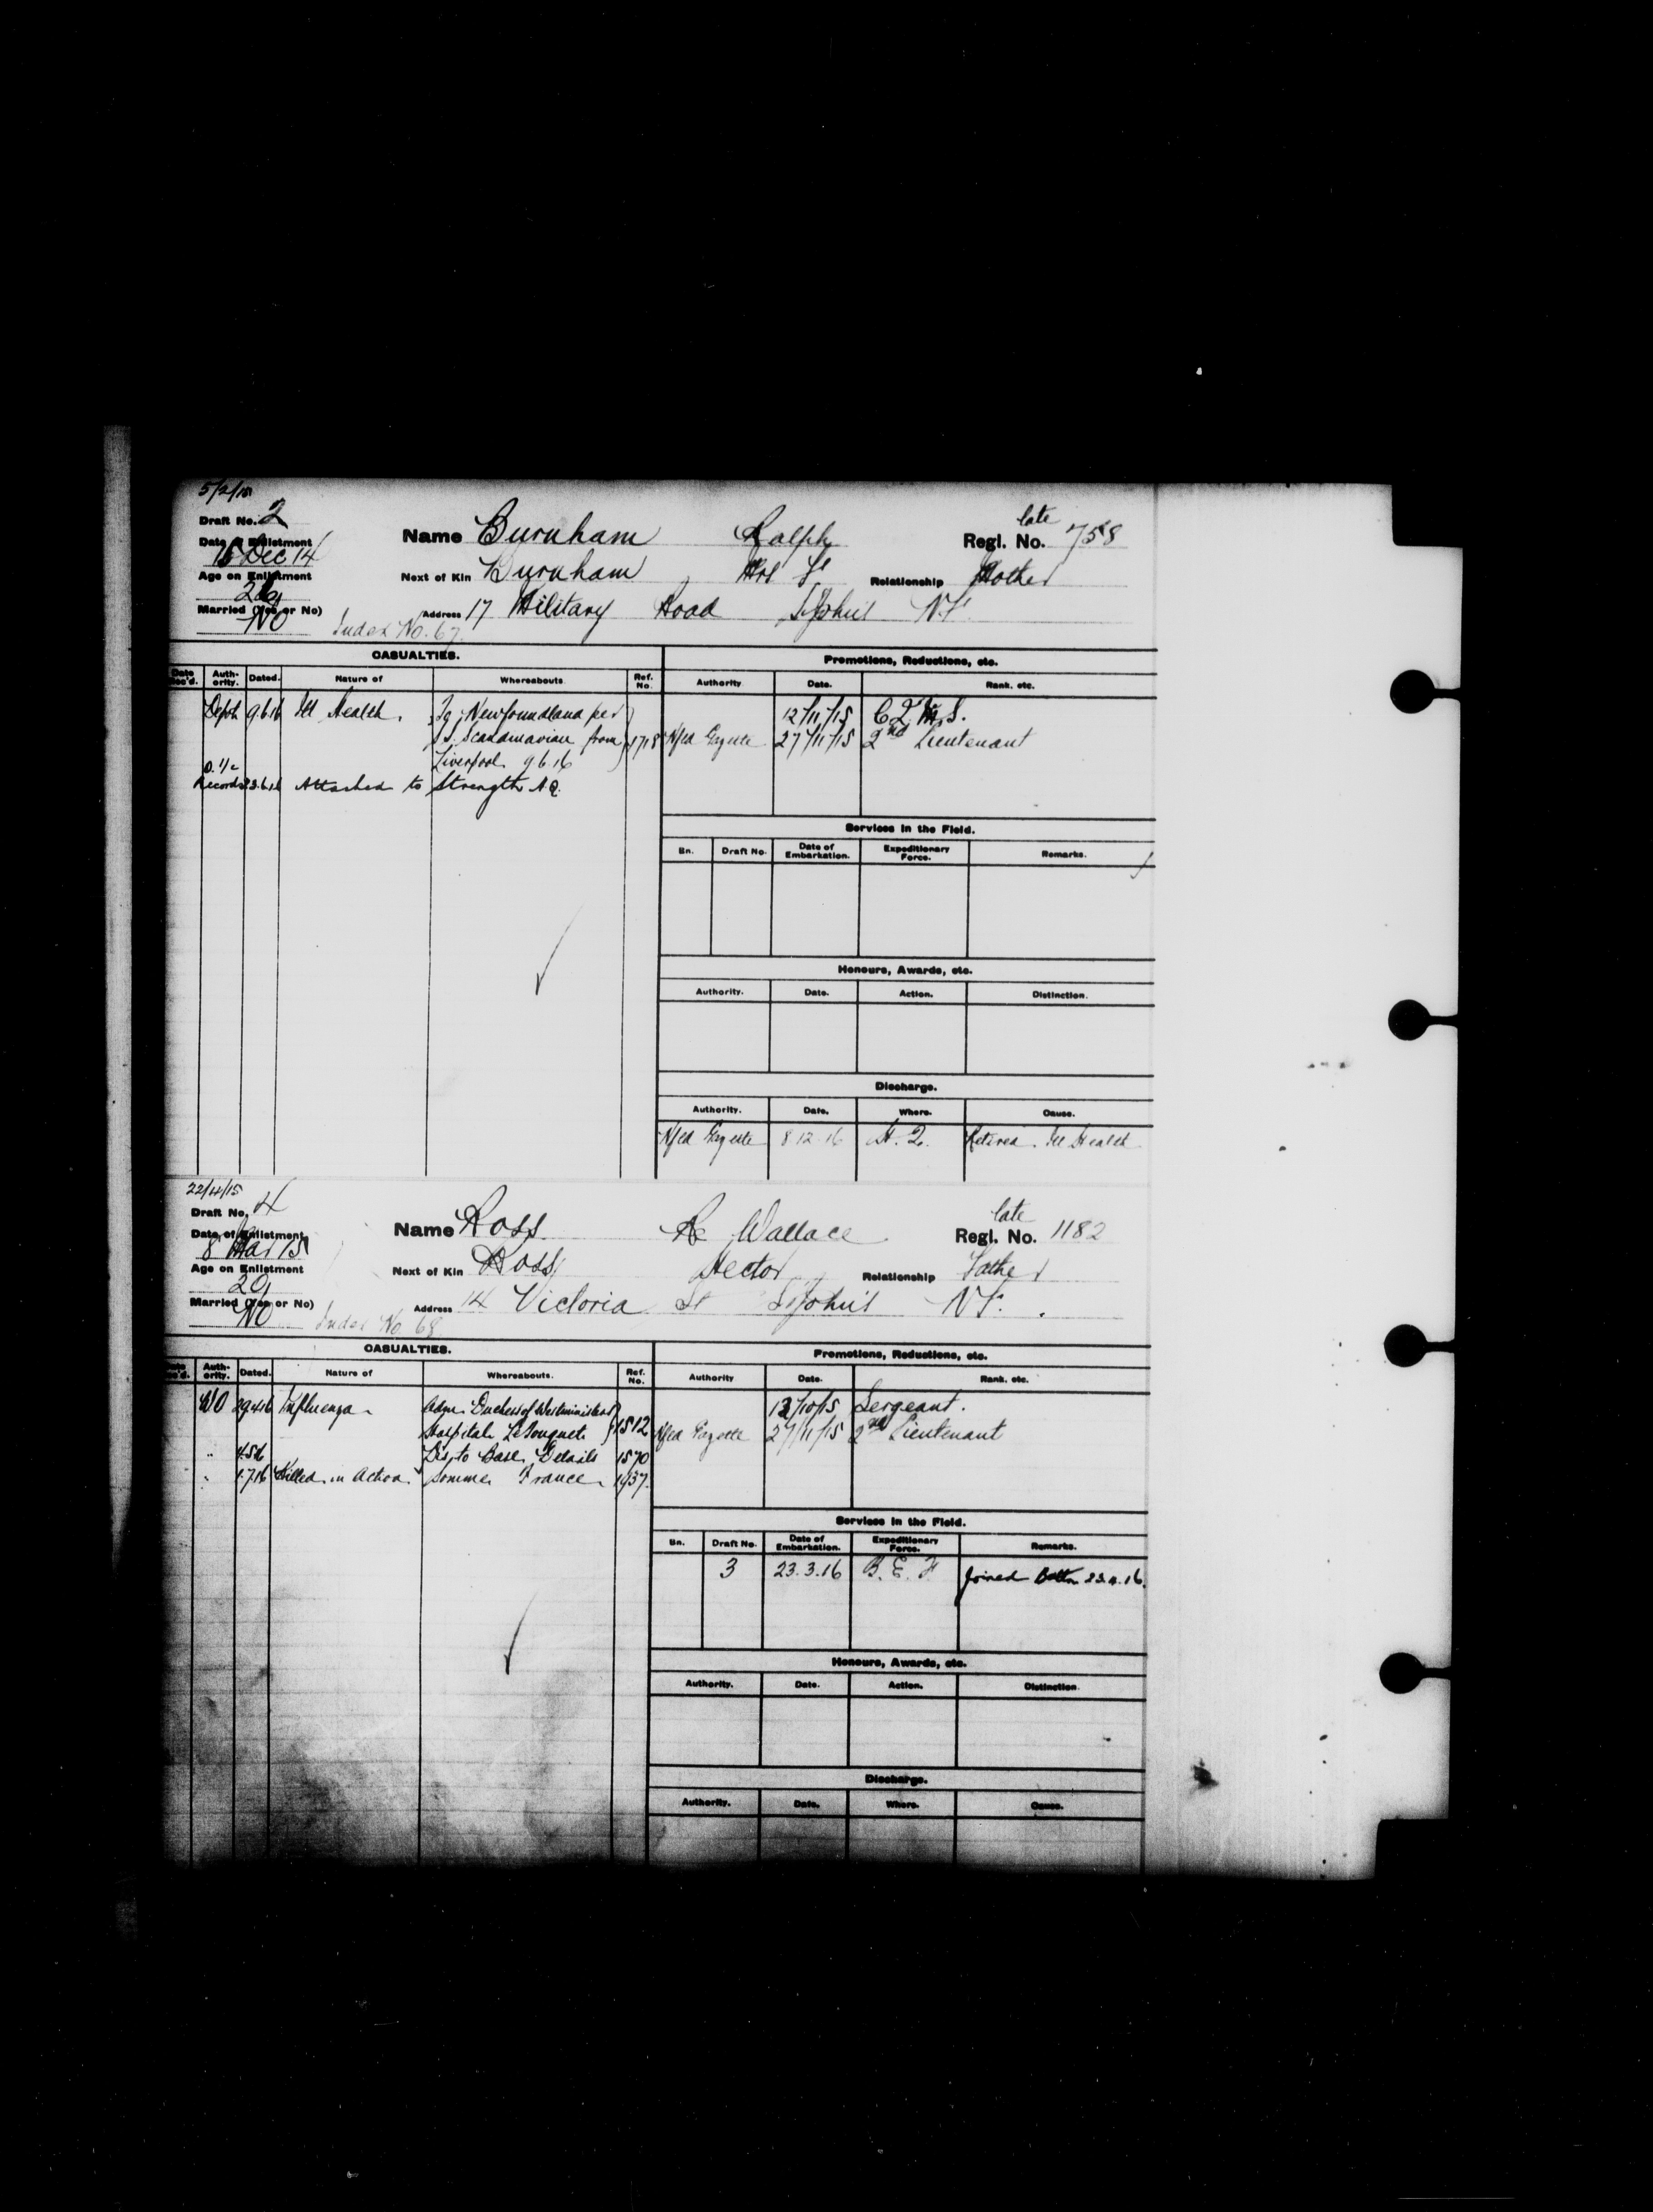 5/2/15
Draft No. 2
Name Burnham Ralph late Regl. No. 758
Date of Enlistment
15 Dec 14
Age on Enlistment Next of Kin Burnham Mrs Relationship Mother
26
Married (Yes or No) Address 17 Military Road St John's N.F.
No Index No. 67.
CASUALTIES. Promotions, Reductions, etc.
Date Rec'd. Auth-ority. Dated. Nature of Whereabouts. Ref. No. Authority Date. Rank. etc.
Depot 9.6.16 Ill Health. To Newfoundland per 12/11/15 C.Q.M.S.
S.S. Scandinavian from 1718 Nfld Gazette 27/11/15 2nd Lieutenant
Liverpool 9.6.16
O. i/c
Records 23.6.16 Attached to Strength H.Q.
Services in the Field.
Bn. Draft No. Date of Embarkation. Expeditionary Force. Remarks.
Honours, Awards, etc.
Authority. Date. Action. Distinction.
Discharge.
Authority. Date. Where. Cause.
Nfld Gazette 8.12.16 H.Q. Retired. Ill Health
22/4/15
Draft No. 4
Name Ross R Wallace late Regl. No. 1182
Date of Enlistment
8 Mar 15
Age on Enlistment Next of Kin Ross Hector Relationship Father
29
Married (Yes or No) Address 14 Victoria St St John's N.F.
No Index No. 68
CASUALTIES. Promotions, Reductions, etc.
Date Rec'd. Auth-ority. Dated. Nature of Whereabouts. Ref. No. Authority Date. Rank. etc.
WO 29.4.16 Influenza. Adm. Duchess of Westminister 13/10/15 Sergeant.
Hospital Le Touquet 1512 Nfld Gazette 27/11/15 2nd Lieutenant
" 4.5.16 Dis. to Base Details 1570
" 1.7.16 Killed in Action Somme France 1937.
Services in the Field.
Bn. Draft No. Date of Embarkation. Expeditionary Force. Remarks.
3 23.3.16 B.E.F. Joined Battn 23.4.16.
Honours, Awards, etc.
Authority. Date. Action. Distinction.
Discharge.
Authority. Date. Where. Cause.